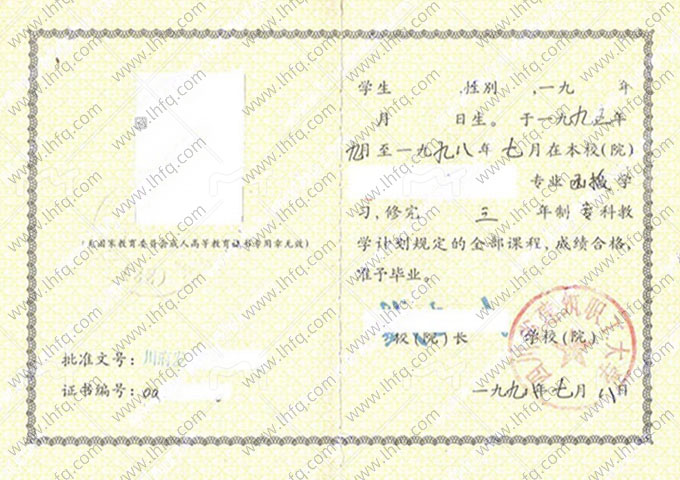 (无国家教育委员会成人高等教育证书专用章无效)
批准文号:川府发
证书编号:00
学生 ,性别 ,一九 年
月 日生。于一九九五年
九月至一九九八年七月在本校(院)
专业函授学
习,修完 三 年制专科教
学计划规定的全部课程,成绩合格,
准予毕业。
校(院)长 学校(院)
一九九八年七月 日
www.lhfq.com